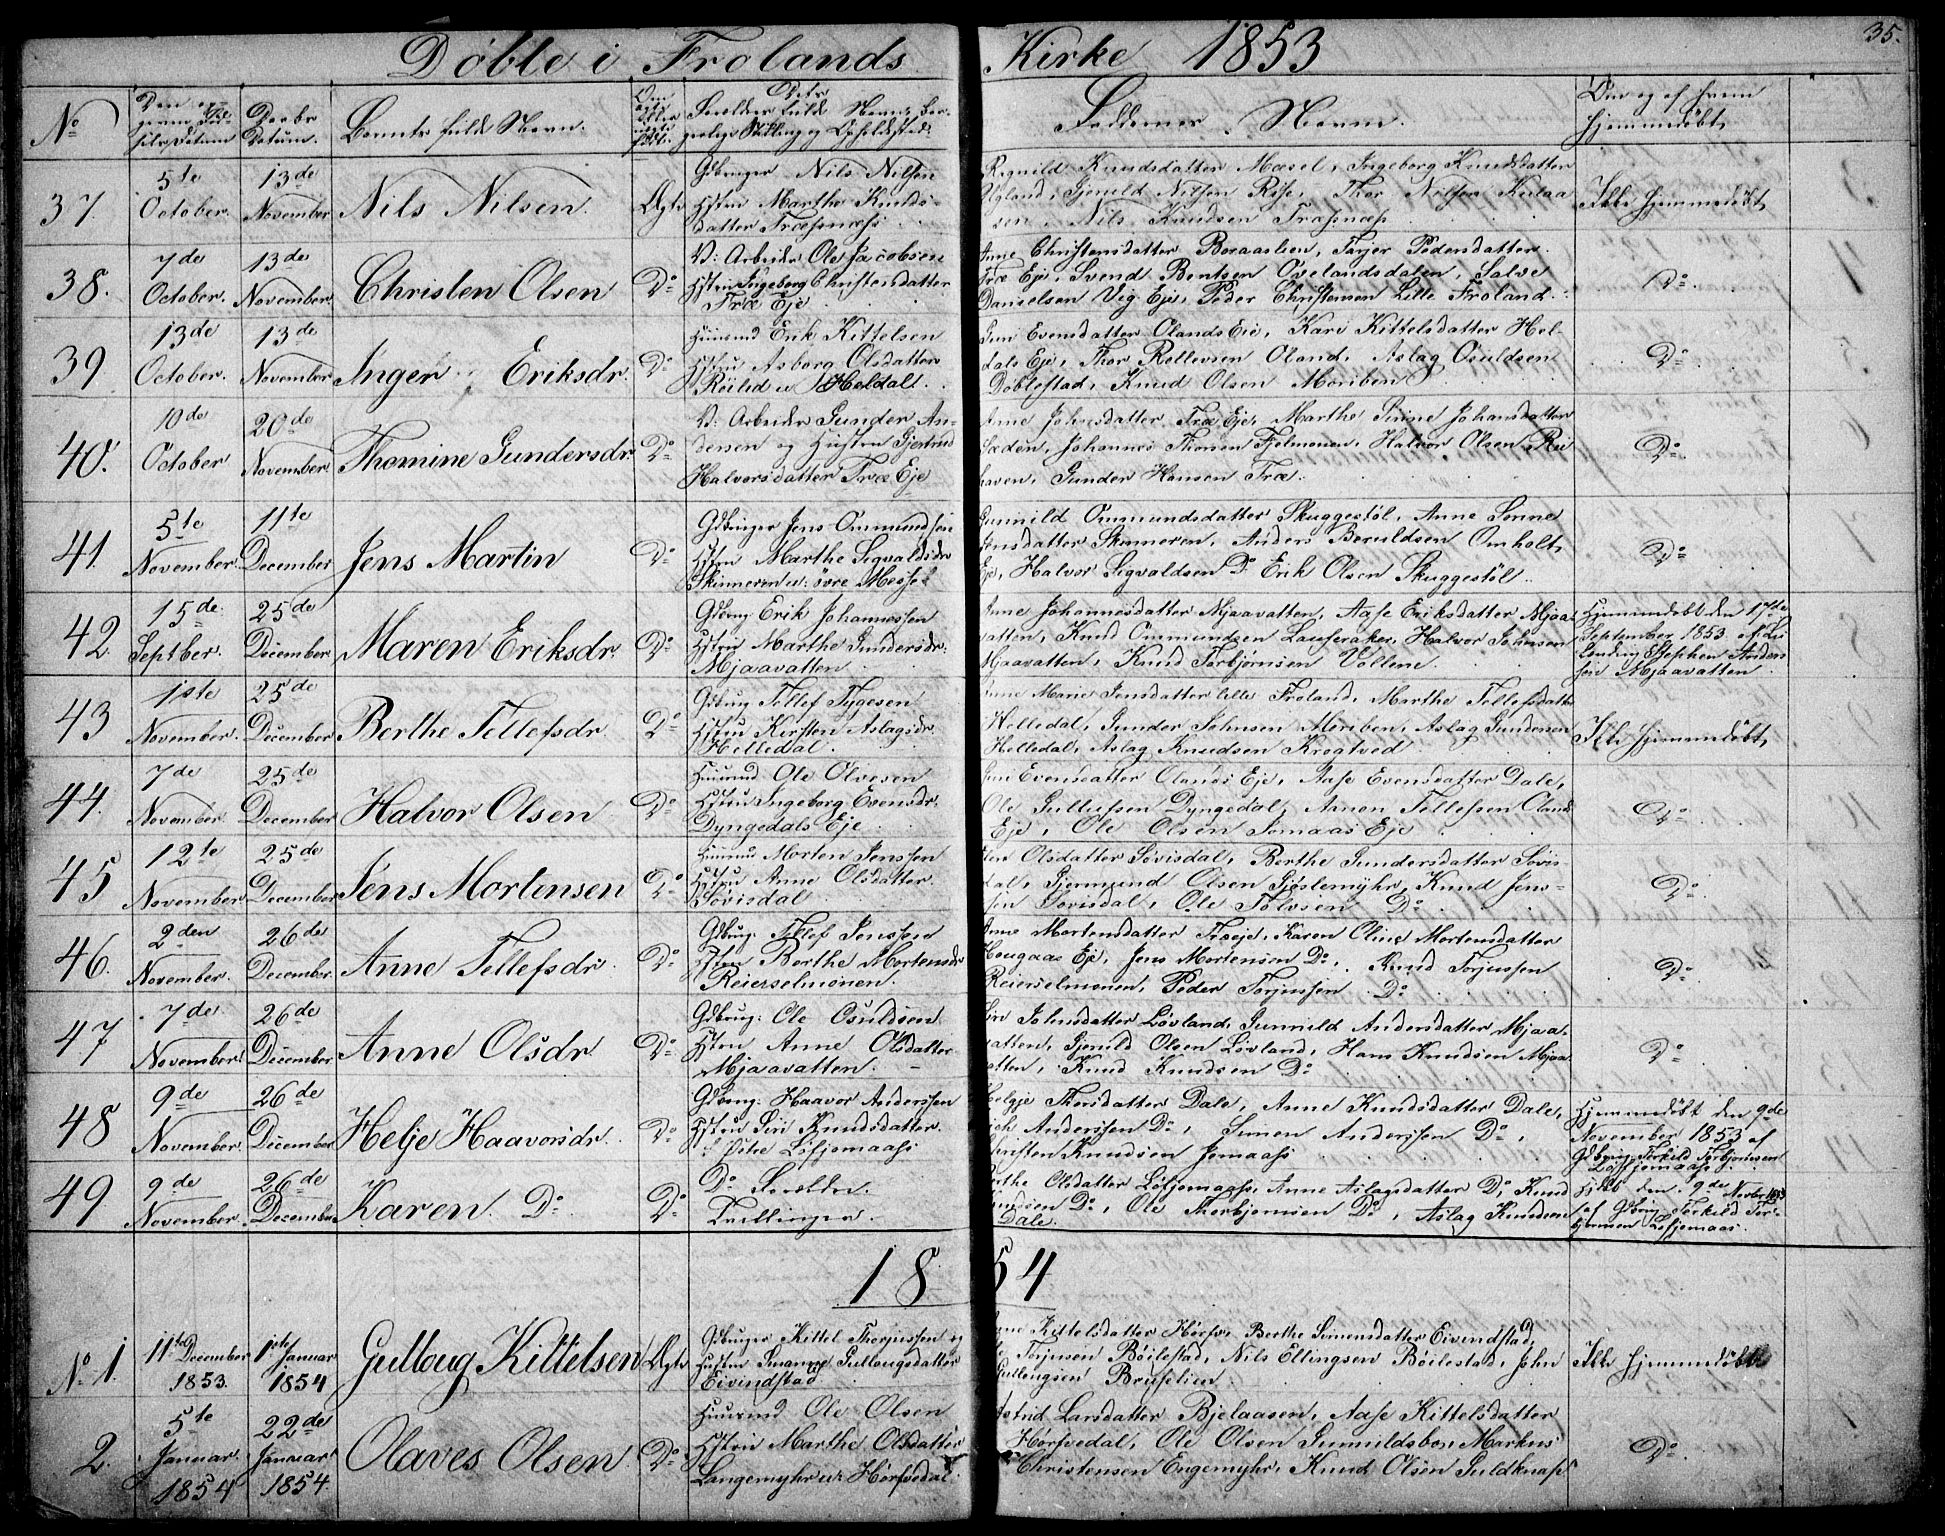 Døbte i Frolands Kirke 1853
35.
No
Datum.
Barnets fulde Navn.
Faddernes Navne.
Hjemmedøbt
37. 5te October. 13de November Nils Nilsen. Ægte
Gdbruger Nils Nilsen
Hstru Marthe Knuds-
datter
Ragnild Knudsdatter Mæsel, Ingeborg Knudsdatter
Ugland, Gjeruld Nilsen Rise, Thor Nilsen
Nils Knudsen
Ikke hjemmedøbt
38. 7de October. 13de November. Christen Olsen Do
Arbeider Ole Jacobsen
Hstru Ingeborg Christensdatter
Træ Eje
Anne Christensdatter Boraaslien, Tarjer Pedersdatter
Træ Eje, Svend Bentsen Ovelandsdalen, Salve
Danielsen Vig Eje, Peder Christensen Lille Froland.
Do.
39 13de October. 13de November Inger Eriksdr. Do
Huusmd Erik Kittelsen
Hstru Asborg Olsdatter
Heldal.
Guri Evensdatter Olands Eie, Kari Kittelsdatter Hel-
dals Eje, Thor Rollevsen Oland, Aslag Osuldsen
Døblestad, Knud Olsen Moriben
Do
40. 10de October 20de November. Thomine Gundersdr Do
Arbeider Gunder An-
dersen og Hustru Gjertrud
Halvorsdatter Træ Eje
Anne Johnsdatter Træ Eje, Marthe Sirine Johansdatter
Johannes Thorsen Fjelmonen, Halvor Olsen Rei
haven, Gunder Hansen Træ.
Do.
41. 5te November. 11te December Jens Martin Do
Gdbruger Jens Ommundsen
Hstru Marthe Sigvaldsdr
Skinneren u. øvre Messel
Gunnild Ommundsdatter Skuggestøl, Anne Sonne
Jensdatter Skinneren, Anders Beruldsen Omholt
Eje, Halvor Sigvaldsen Do Erik Olsen Skuggestøl.
Do
42. 15de Septber. 25de December Maren Eriksdr. Do
Gdbrug Erik Johannessen
Hstru Marthe Gundersdr.
Mjaavatten
Anne Johannesdatter Mjaavatten, Aase Eriksdatter Mjaa-
vatten, Knud Ommundsen Lauveraker, Halvor Johnsen
Mjaavatten, Knud Torbjørnsen Vollene.
Hjemmedøbt den 17de
September 1853 af
Stephen Anders
sen Mjaavatten
43 1ste November. 25de December Berthe Tellefsdr Do
Gdbrug Tellef Tygesen
Hstru Kirsten Aslagsdr.
Helledal.
Anne Marie Jensdatter lille Froland, Marthe Tellefsdatter
Helledal, Gunder Johnsen Moriben, Aslag Gundersen
Helledal, Aslag Knudsen Krogtved
Ikke hjemmedøbt
44. 7de November. 25de December Halvor Olsen Do
Huusmd Ole Olvesen
Hstru Ingeborg Evensdr.
Dyngedals Eje
Evensdatter Olands Eje, Aase Evensdatter Dale,
Ole Gullufsen Dyngedal, Aanon Tellefsen Olands
Eje, Ole Olsen Jomaas Eje
Do
45 12te November 25de December Jens Mortensen Do
Huusmd Morten Jenssen
Hstru Anne Olsdatter
Søvisdal
Olsdatter Søvisdal, Berthe Gundersdatter Søvis-
dal, Gjermund Olsen Gjøslemyhr, Knud Jens-
sen Søvisdal, Ole Tolvsen Do
Do
46. 2den November. 26de December. Anne Tellefsdr. Do
Gdbrug. Tellef Jenssen
Hstru Berthe Mortensdr
Reierselmonen.
Anne Mortensdatter Træeje, Karen Oline Mortensdatter
Hougaas Eje, Jens Mortensen Do, Knud Torjussen
Reierselmonen, Peder Torjussen Do
Do
47 7de November. 26de December Anne Olsdr. Do
Gdbrug. Ole Osuldsen
Hstru Anne Olsdatter
Mjaavatten.
Siri Johnsdatter Løvland, Gunnild Andersdatter Mjaa-
vatten, Gjeruld Olsen Løvland, Hans Knudsen Mjaa
vatten, Knud Knudsen Do
Do
48 9de November. 26de December Helje Haavorsdr. Do
Gdbrug. Haavor Anderssen
Hstru Siri Knudsdatter
Løfsjomaas
Helgje Thorsdatter Dale, Anne Knudsdatter Dale,
Anderssen Do, Simon Anderssen Do,
Christen Knudsen Jomaas
Hjemmedøbt den 9de
November 1853 af
Gdbrug. Terkild Torbjørnsen
Løfsjomaas
49 9de November. 26de December Karen Do. Do
Do Forældre.
Tvillinger.
Berthe Olsdatter Løfsjomaas, Anne Aslagsdatter Do, Knud
Knudsen Do, Ole Thorbjørnsen Do, Aslag Knudsen
Dale.
Hjdbt den 9de Novbr 1853
af Gdbrug Terkild Tor-
bjørnsen Løfsjomaas.
1854
No 1. 11te December 1853. 1ste Januar 1854 Gulloug Kittelsen Ægte
Gdbruger Kittel Thorjussen og
Hustru Gullougsdatter
Eivindstad
Kittelsdatter Hørsv, Berthe Simensdatter Eivindstad,
Torjusen Bøilestad, Nils Ellingsen Bøilestad, John
Gullougsen Bruselien
Ikke hjemmedøbt
2. 5te Januar 1854 22de Januar 1854. Olaves Olsen Do
Huusmd Ole Olsen
Hstru Marthe Olsdatter
Langemyhr u. Hørsvedal.
Astrid Larsdatter Bjelaasen, Aase Kittelsdatter
Hørsvedal, Ole Olsen Gunnildsbo, Markus
Christensen Engemyhr, Knud Olsen Guldknap
Do